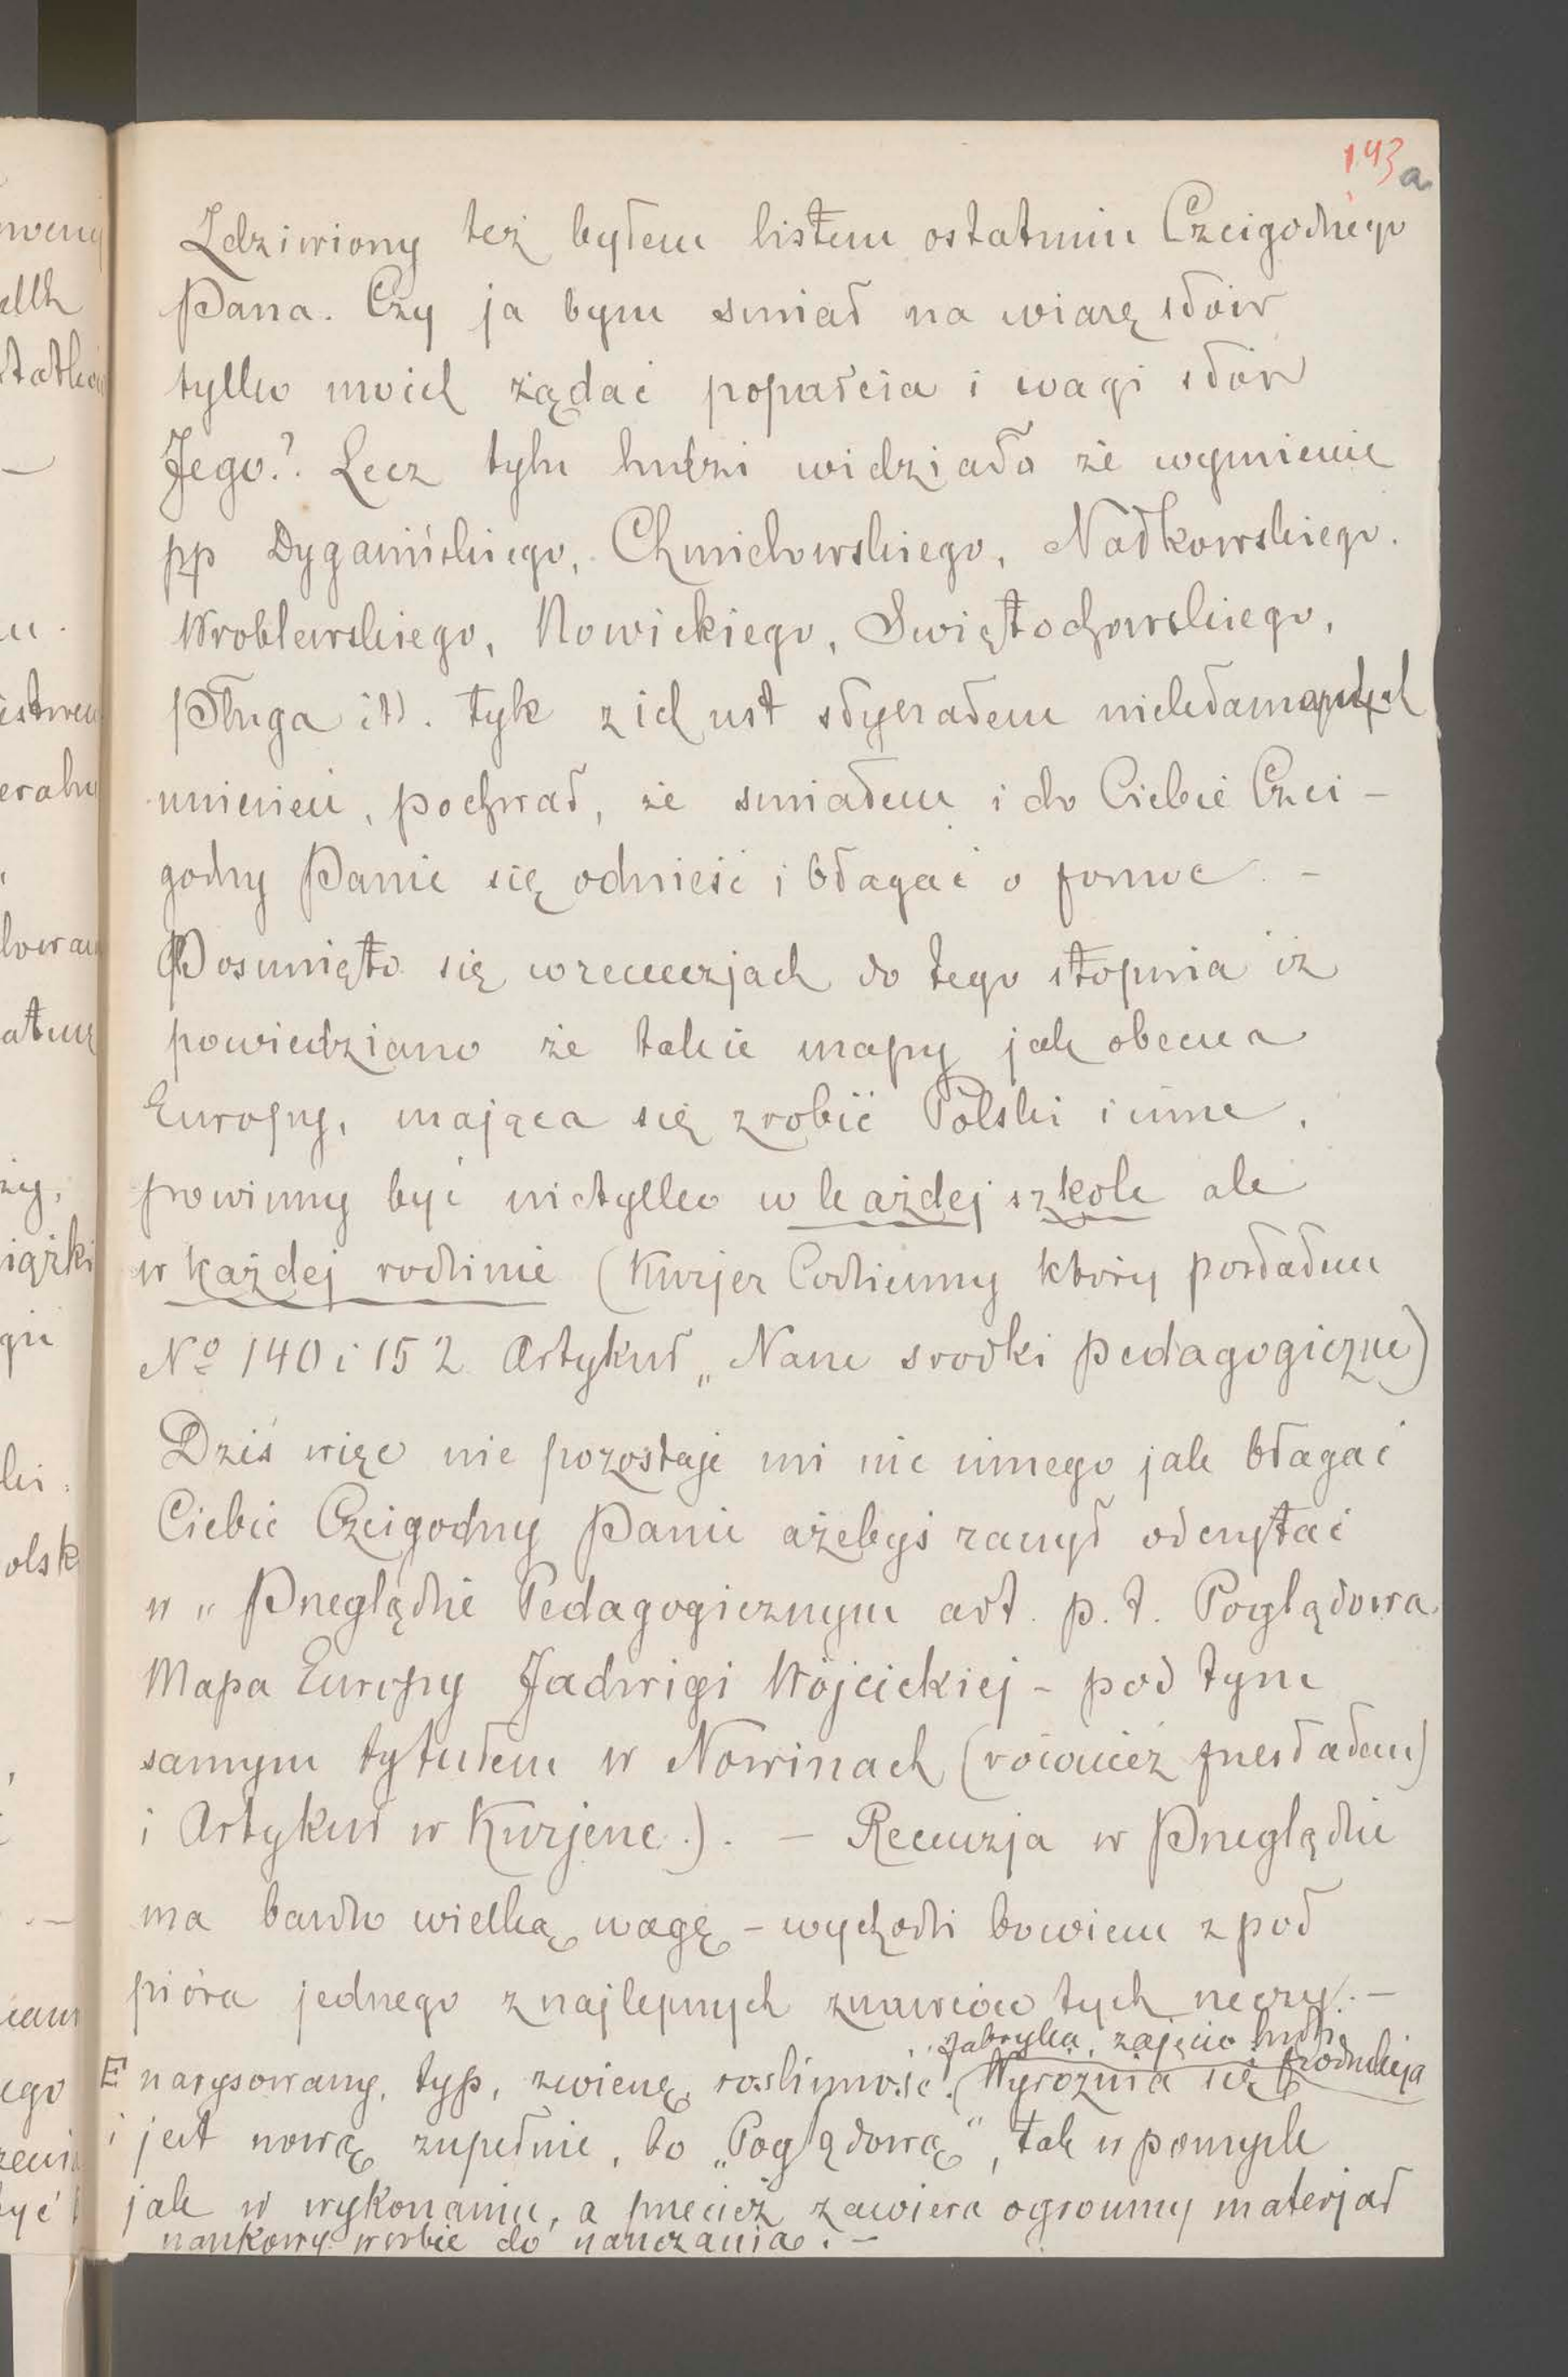 193a
Zdziwiony też byłem listem ostatnim Czcigodnego
Pana. Czy ja bym smiał na wiarę słów
tylko moich żądać poparcia i wagi słów
Jego?. Lecz tylu ludzi widziało że wymienię
pp Dygasińskiego, Chmielowskiego, Nałkowskiego.
Wroblewskiego, Nowickiego, Swiętochowskiego,
Pługa itd. tyle z ich ust słyszałem niekłamanych
uniesień, pochwał, że smiałem i do Ciebie Czci-
godny Panie się odnieść i błagać o pomoc. -
Posunięto się w recenzjach do tego stopnia iż
powiedziano że takie mapy jak obecna
Europy, mająca się zrobić Polski i inne,
powinny być nietylko w każdej szkole ale
w każdej rodzinie (Kurjer Codzienny który posłałem
No 140 i 152 Artykuł „Nasze srodki pedagogiczne)
Dziś więc nie pozostaje mi nic innego jak błagać
Ciebie Czcigodny Panie ażebyś raczył odczytać
w „Przeglądzie Pedagogicznym art. p.t. Poglądowa
Mapa Europy Jadwigi Wójcickiej - pod tym
samym tytułem w Nowinach (również przesłałem)
i Artykuł w Kurjerze.). — Recenzja w Przeglądzie
ma bardzo wielką wagę - wychodzi bowiem z pod
pióra jednego z najlepszych znawców tych rzeczy. —
fabryka, zajęcie ludzi, produkcja
E narysowany, typ, zwierzę, roslinność. (Wyrożnia się
i jest nową zupełnie, bo „Poglądową", tak w pomysle
jak w wykonaniu, a przecież zawiera ogromny materjał
naukowy w sobie do nauczania. —